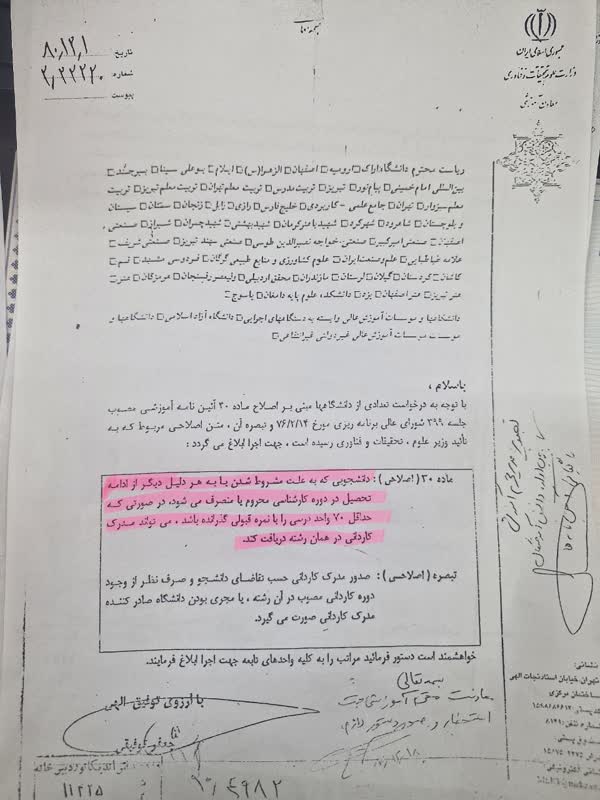 بسمه تعالی
جمهوری اسلامی ایران
وزارت علوم، تحقیقات و فناوری
معاونت آموزشی
تاریخ ۸۰,۱۲,۱
شماره ۲,۲۲۲۰
پیوست
ریاست محترم دانشگاه اراک □ ارومیه □ اصفهان □ الزهرا(س) □ ایلام □ بوعلی سینا □ بیرجند □
بین‌المللی امام خمینی □ پیام نور □ تبریز □ تربیت مدرس □ تربیت معلم تهران □ تربیت معلم تبریز □ تربیت
معلم سبزوار □ تهران □ جامع علمی - کاربردی □ خلیج فارس □ رازی □ زابل □ زنجان □ سمنان □ سیستان
و بلوچستان □ شاهرود □ شهرکرد □ شهید باهنر کرمان □ شهید بهشتی □ شهید چمران □ شیراز □ صنعتی
اصفهان □ صنعتی امیرکبیر □ صنعتی خواجه نصیرالدین طوسی □ صنعتی سهند تبریز □ صنعتی شریف □
علامه طباطبایی □ علم و صنعت ایران □ علوم کشاورزی و منابع طبیعی گرگان □ فردوسی مشهد □ قم □
کاشان □ کردستان □ گیلان □ لرستان □ مازندران □ محقق اردبیلی □ ولیعصر رفسنجان □ هرمزگان □ هنر □
هنر تبریز □ هنر اصفهان □ یزد □ دانشکده علوم پایه دامغان □ یاسوج □
دانشگاهها و موسسات آموزش عالی وابسته به دستگاههای اجرایی □ دانشگاه آزاد اسلامی □ دانشگاهها و
موسسات آموزش عالی غیردولتی غیرانتفاعی □
باسلام ،
با توجه به درخواست تعدادی از دانشگاهها مبنی بر اصلاح ماده ۳۰ آئین نامه آموزشی مصوب
جلسه ۳۹۹ شورای عالی برنامه ریزی مورخ ۷۶/۲/۱۴ و تبصره آن ، متن اصلاحی مربوط که به
تأئید وزیر علوم ، تحقیقات و فناوری رسیده است ، جهت اجرا ابلاغ می گردد :
ماده ۳۰ (اصلاحی) : دانشجویی که به علت مشروط شدن یا به هر دلیل دیگر از ادامه
تحصیل در دوره کارشناسی محروم یا منصرف می شود، در صورتی که
حداقل ۷۰ واحد درسی را با نمره قبولی گذرانده باشد ، می تواند مدرک
کاردانی در همان رشته دریافت کند.
تبصره (اصلاحی) : صدور مدرک کاردانی حسب تقاضای دانشجو و صرف نظر از وجود
دوره کاردانی مصوب در آن رشته ، یا مجری بودن دانشگاه صادر کننده
مدرک کاردانی صورت می گیرد.
خواهشمند است دستور فرمائید مراتب را به کلیه واحدهای تابعه جهت اجرا ابلاغ فرمایند.
با آرزوی توفیق الهی
جعفر توفیقی
بسمه تعالی
معاونت محترم آموزشی جهت
استحضار و صدور دستور لازم
نشانی:
تهران خیابان استاد نجات الهی
ساختمان مرکزی
۱۱۲۲۵
۱۰۴۹۸۲